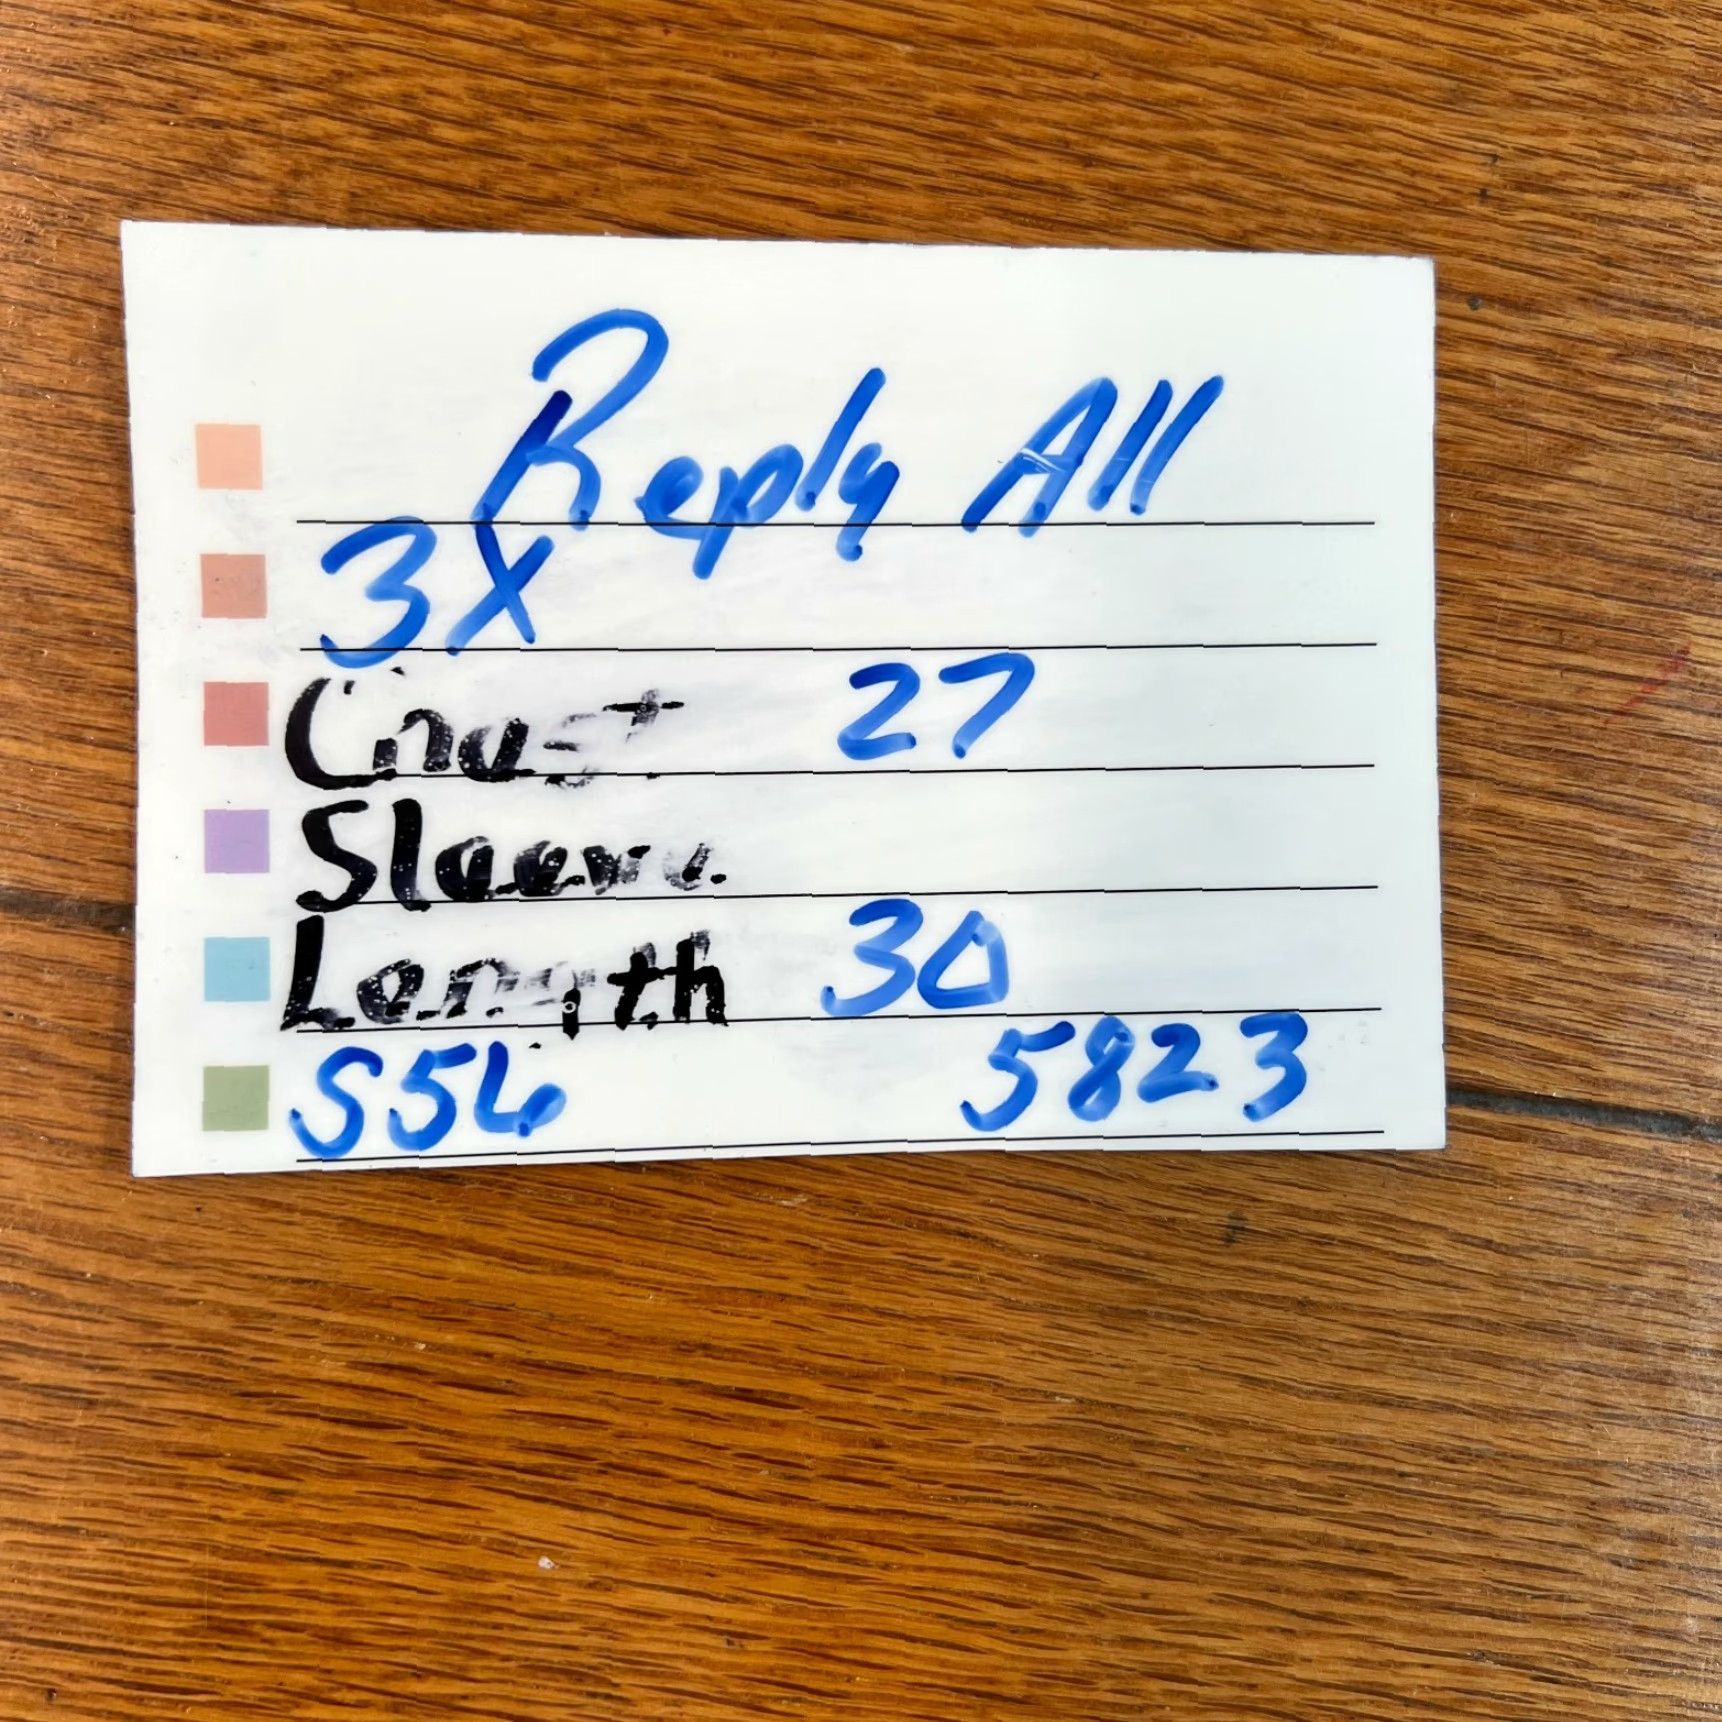 Reply All
3X
Chest 27
Sleeve
Length 30
S56 5823